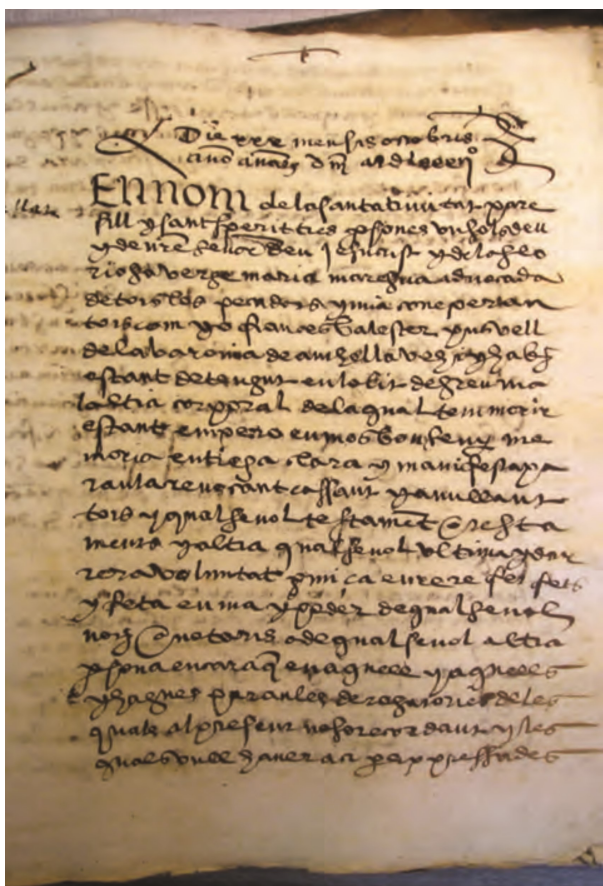 Die xxx mensis octobris
anno a natt dñi MDLxxxiº
EN NOM de la santa trinitat pare
fill y sant sperit tres psones vn sols deu
y de nre señor deu Jesucrist y de la glo
riosa verge maria mare sua advocada
de tots los pecadors ymia con e per tan
tots com yo frances balester pus vell
de la varonia de
estant detengut en lo lit de greu ma
laltia corporal de la qual tem morir
estant empero en mos bon seny me
moria entegra clara y manifesta pa
raula revocant cassant y anullant
tots y qualsevol testament o testa
ments y altra qualsevol vltima y dar
rera volūtat p mi ça enrere fet fets
y feta en ma y poder de qualsevol
not o notaris o de qualsevol altra
psona encara q en aquell y aquells
y hagues paraules derogatories de les
quals al present no so recordant y les
quals vull haver aci per expressades